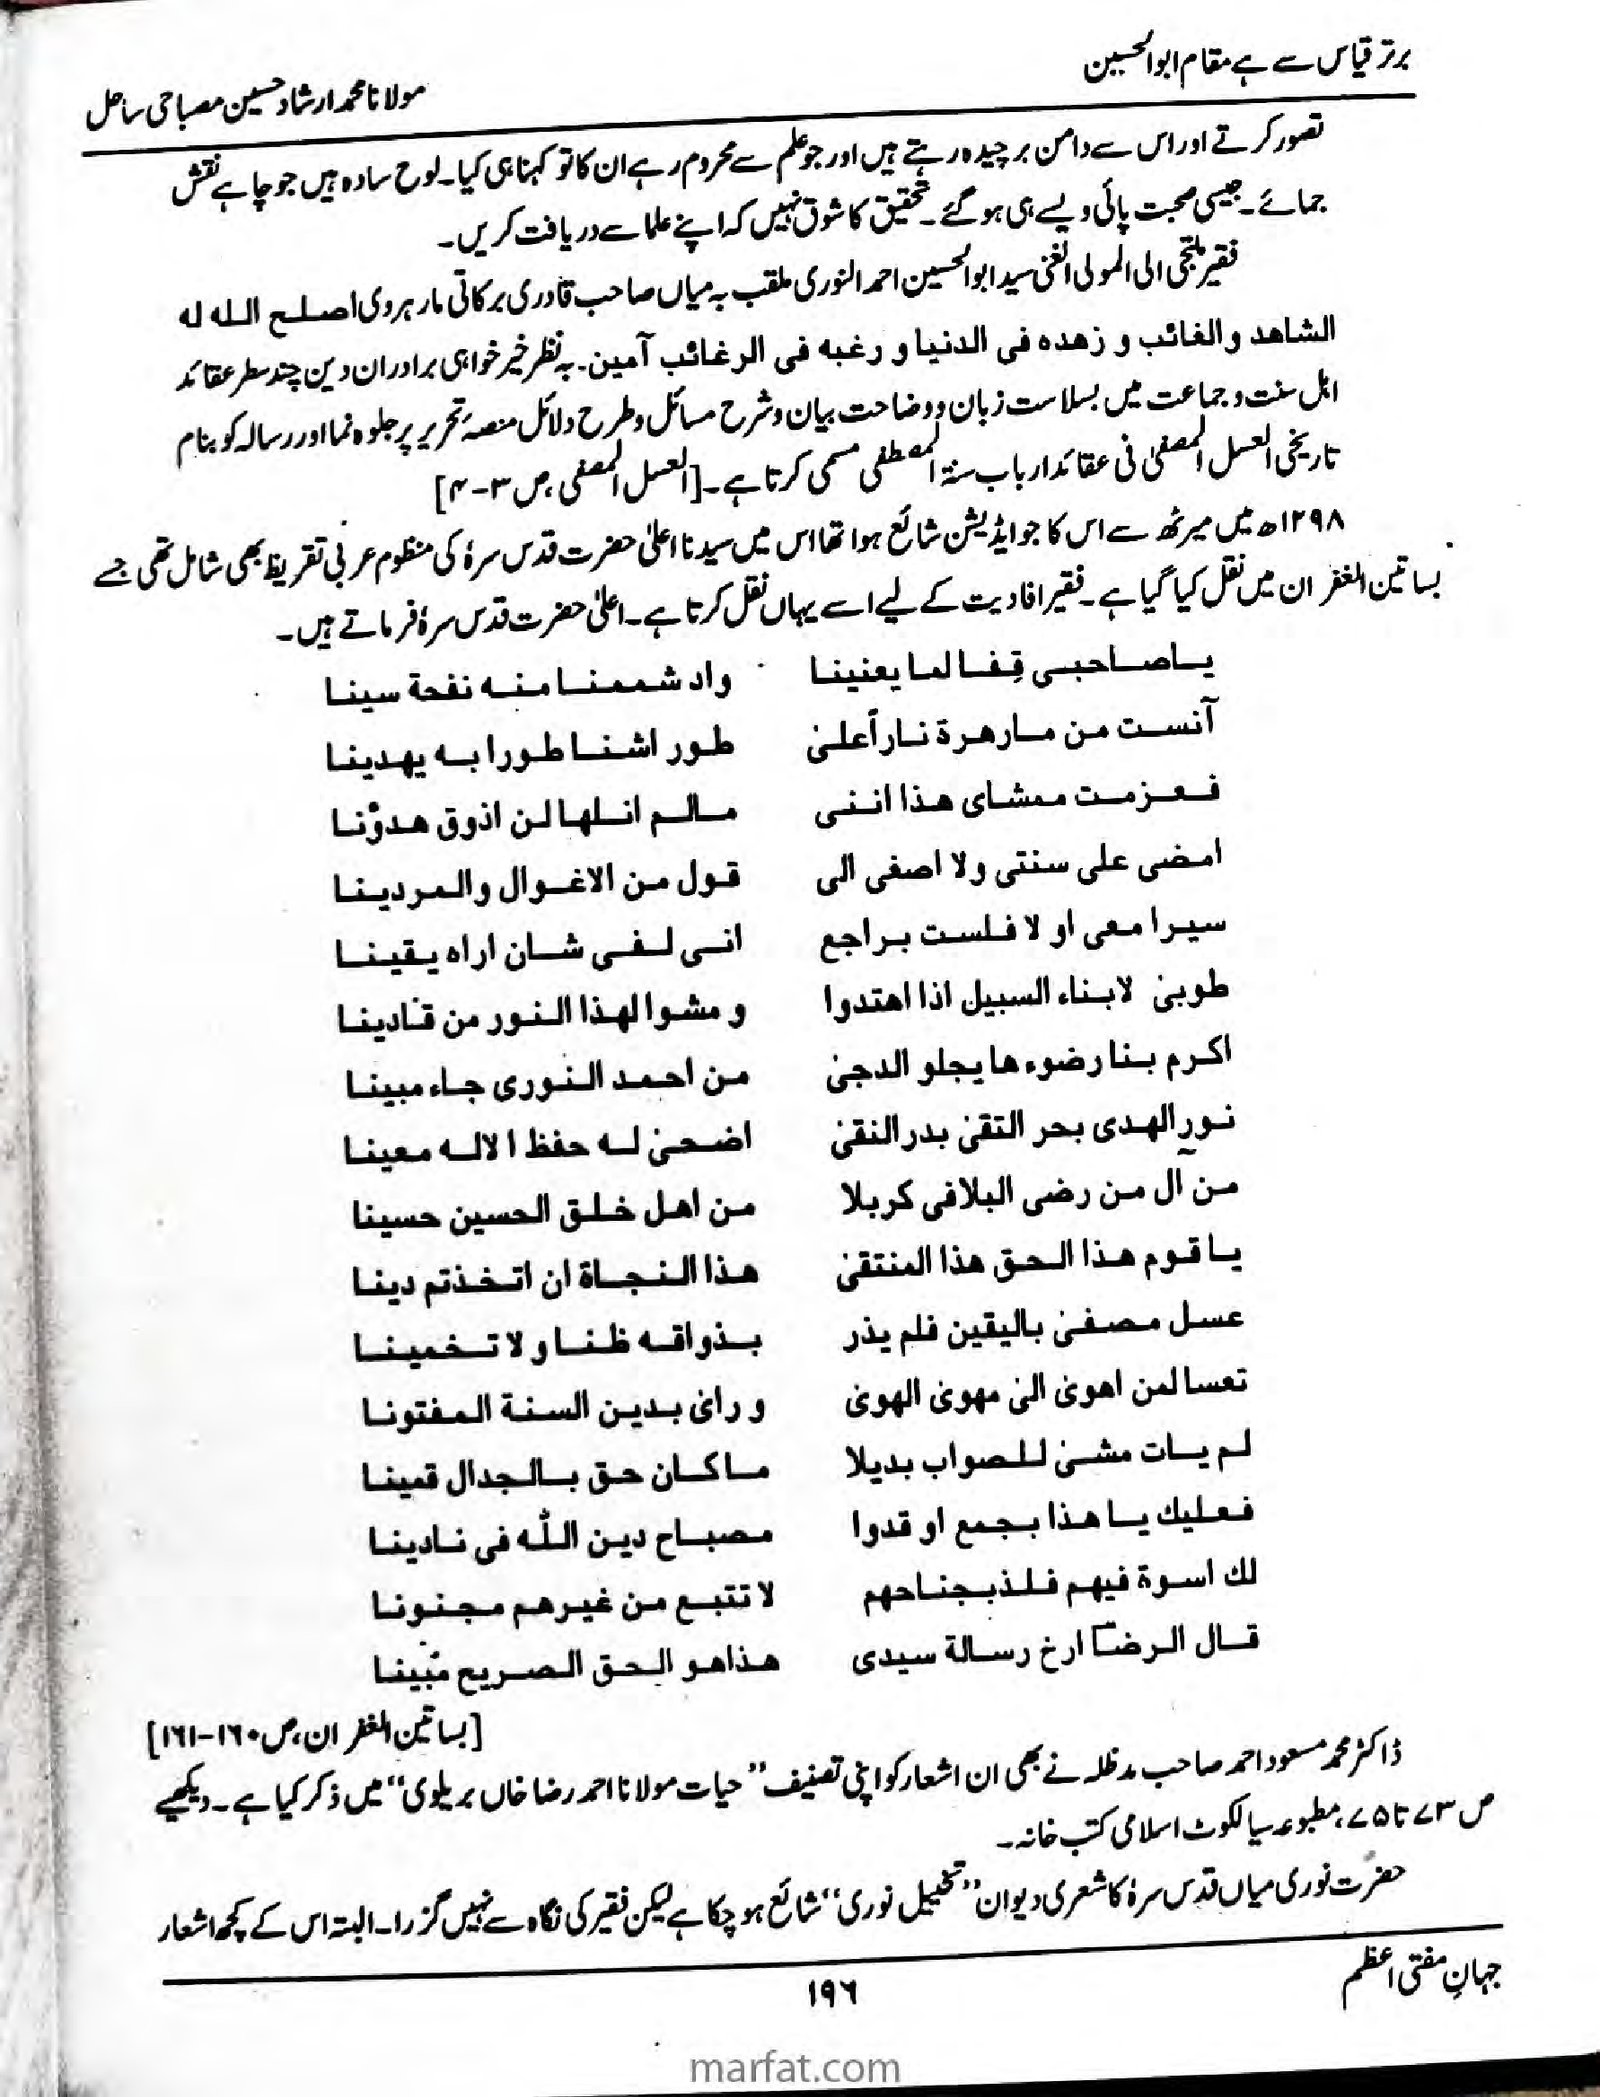 برتر قیاس سے ہے مقام ابوالحسین
مولانا محمد ارشاد حسین مصباحی ساحل
تصور کرتے اور اس سے دامن برچیدہ رہتے ہیں اور جو علم سے محروم رہے ان کا تو کہنا ہی کیا۔ لوح سادہ ہیں جو چاہے نقش
جمائے۔ جیسی صحبت پائی ویسے ہی ہو گئے۔ تحقیق کا شوق نہیں کہ اپنے علما سے دریافت کریں۔
فقیر ملتجی الی المولی الغنی سید ابوالحسین احمد النوری ملقب بہ میاں صاحب قادری برکاتی مارہروی اصلح اللہ لہ
الشاهد والغائب و زهده فی الدنیا و رغبه فی الرغائب آمین۔ بہ نظر خیر خواہی برادران دین چند سطر عقائد
اہل سنت و جماعت میں بسلاست زبان و وضاحت بیان و شرح مسائل و طرح دلائل منصۂ تحریر پر جلوہ نما اور رسالہ کو بنام
تاریخی العسل المصفیٰ فی عقائد ارباب سنۃ المصطفی مسمی کرتا ہے۔ [العسل المصفی، ص ۳-۴]
۱۲۹۸ھ میں میرٹھ سے اس کا جو ایڈیشن شائع ہوا تھا اس میں سیدنا اعلیٰ حضرت قدس سرہٗ کی منظوم عربی تقریظ بھی شامل تھی جسے
بساتین الغفران میں نقل کیا گیا ہے۔ فقیر افادیت کے لیے اسے یہاں نقل کرتا ہے۔ اعلیٰ حضرت قدس سرہٗ فرماتے ہیں۔
یاصاحبی قِفا لما یعنینا واد شممنا منه نفحة سینا
آنست من مارهرة ناراً علیٰ طور اشنا طورا به یهدینا
فعزمت ممشای هذا اننی مالم انلها لن اذوق هدوْنا
امضی علی سنتی ولا اصغی الی قول من الاغوال والمردینا
سیرا معی او لا فلست براجع انی لفی شان اراه یقینا
طوبیٰ لابناء السبیل اذا اهتدوا و مشوا لهذا النور من قادینا
اکرم بنا رضوء ها یجلو الدجیٰ من احمد النوری جاء مبینا
نور الهدی بحر التقیٰ بدر النقیٰ اضحیٰ له حفظ الاله معینا
من آل من رضی البلا فی کربلا من اهل خلق الحسین حسینا
یا قوم هذا الحق هذا المنتقیٰ هذا النجاة ان اتخذتم دینا
عسل مصفیٰ بالیقین فلم یذر بذواقه ظنا و لا تخمینا
تعسا لمن اهویٰ الیٰ مهویٰ الهویٰ و رایٰ بدین السنة المفتونا
لم یات مشیٰ للصواب بدیلا ماکان حق بالجدال قمینا
فعلیك یا هذا بجمع او قدوا مصباح دین اللّٰه فی نادینا
لك اسوة فیهم فلذ بجناحهم لا تتبع من غیرهم مجنونا
قال الرضا ارخ رسالة سیدی هذا هو الحق الصریح مُبینا
[بساتین الغفران، ص ۱۶۰-۱۶۱]
ڈاکٹر محمد مسعود احمد صاحب مدظلہ نے بھی ان اشعار کو اپنی تصنیف ”حیات مولانا احمد رضا خاں بریلوی“ میں ذکر کیا ہے۔ دیکھیے
ص ۷۳ تا ۷۵، مطبوعہ سیالکوٹ اسلامی کتب خانہ۔
حضرت نوری میاں قدس سرہٗ کا شعری دیوان ”تخییل نوری“ شائع ہو چکا ہے لیکن فقیر کی نگاہ سے نہیں گزرا۔ البتہ اس کے کچھ اشعار
جہانِ مفتی اعظم
۱۹۶
marfat.com